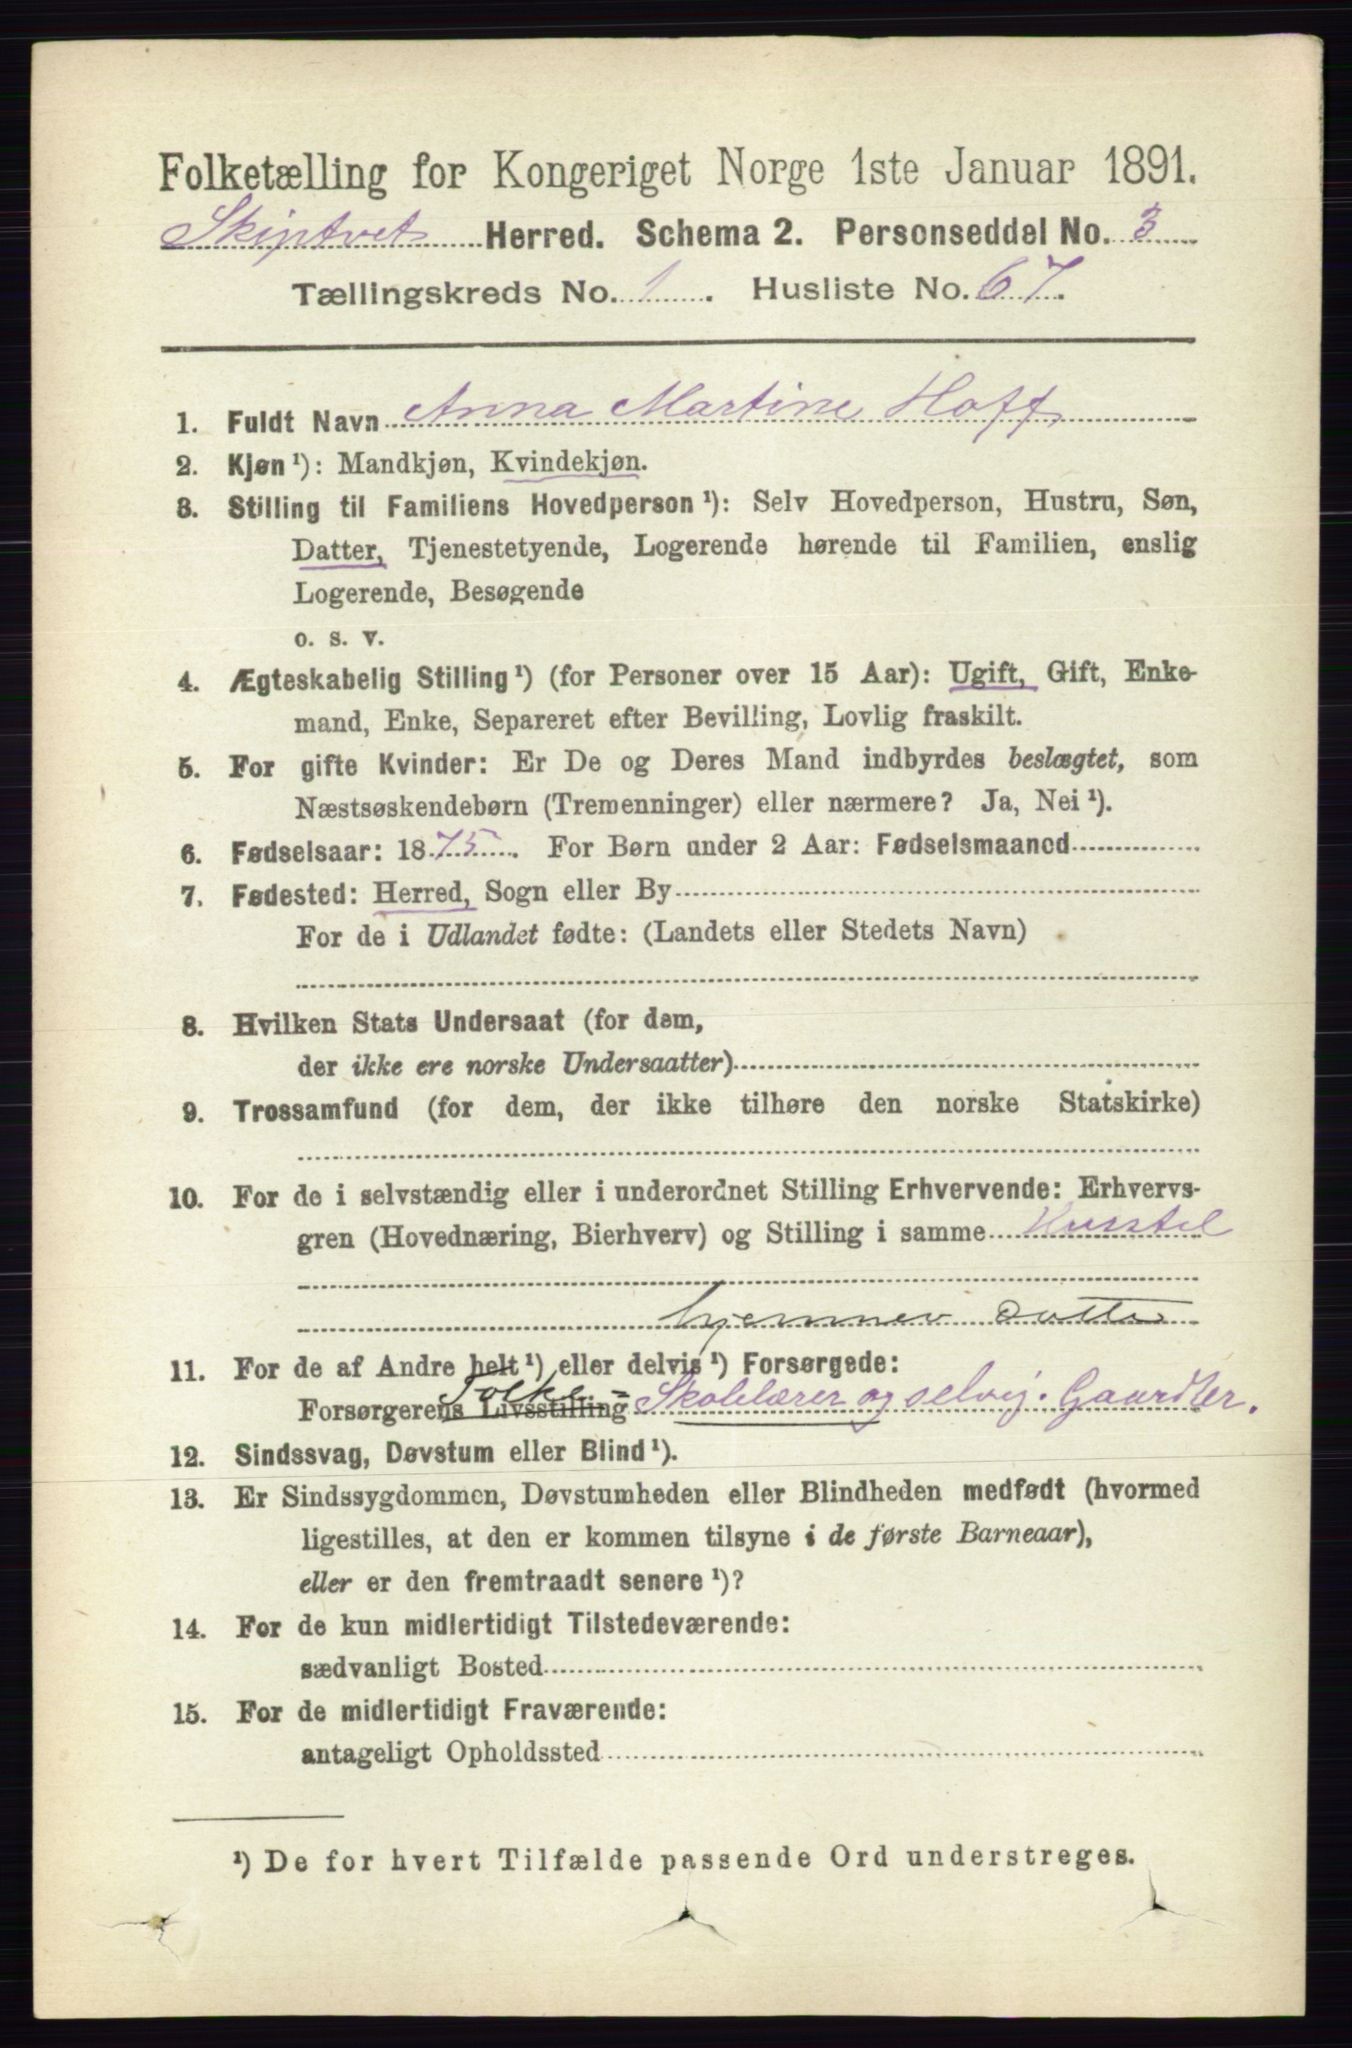 Folketælling for Kongeriget Norge 1ste Januar 1891.
Skiptvet Herred. Schema 2. Personseddel No. 3
Tællingskreds No. 1. Husliste No. 67.
1. Fuldt Navn Anna Martine Hoff
2. Kjøn¹): Mandkjøn, Kvindekjøn.
3. Stilling til Familiens Hovedperson¹): Selv Hovedperson, Hustru, Søn,
Datter, Tjenestetyende, Logerende hørende til Familien, enslig
Logerende, Besøgende
o. s. v.
4. Ægteskabelig Stilling¹) (for Personer over 15 Aar): Ugift, Gift, Enke-
mand, Enke, Separeret efter Bevilling, Lovlig fraskilt.
5. For gifte Kvinder: Er De og Deres Mand indbyrdes beslægtet, som
Næstsøskendebørn (Tremenninger) eller nærmere? Ja, Nei¹).
6. Fødselsaar: 1875. For Børn under 2 Aar: Fødselsmaaned
7. Fødested: Herred, Sogn eller By
For de i Udlandet fødte: (Landets eller Stedets Navn)
8. Hvilken Stats Undersaat (for dem,
der ikke ere norske Undersaatter)
9. Trossamfund (for dem, der ikke tilhøre den norske Statskirke)
10. For de i selvstændig eller i underordnet Stilling Erhvervende: Erhvervs-
gren (Hovednæring, Bierhverv) og Stilling i samme Husstel
hjemmev datter
11. For de af Andre helt¹) eller delvis¹) Forsørgede:
Folke-
Forsørgerens Livsstilling Skolelærer og selvej. Gaardbr.
12. Sindssvag, Døvstum eller Blind¹).
13. Er Sindssygdommen, Døvstumheden eller Blindheden medfødt (hvormed
ligestilles, at den er kommen tilsyne i de første Barneaar),
eller er den fremtraadt senere¹)?
14. For de kun midlertidigt Tilstedeværende:
sædvanligt Bosted
15. For de midlertidigt Fraværende:
antageligt Opholdssted
¹) De for hvert Tilfælde passende Ord understreges.